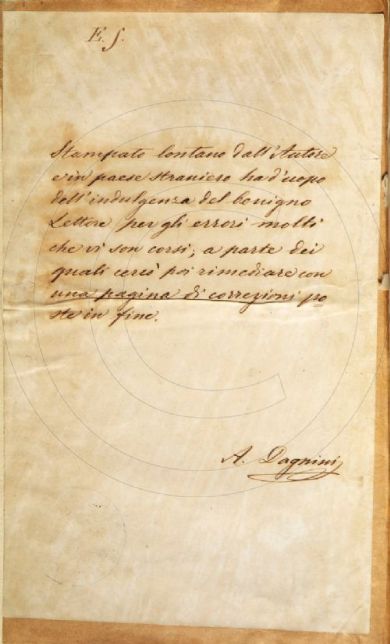 E. S.
Stampato lontano dall'Autore
e in paese straniero ha d'uopo
dell'indulgenza del benigno
Lettore per gli errori molti
che vi son corsi, a parte dei
quali cercò poi rimediare con
una pagina di correzioni po
ste in fine.
A. Dagnini